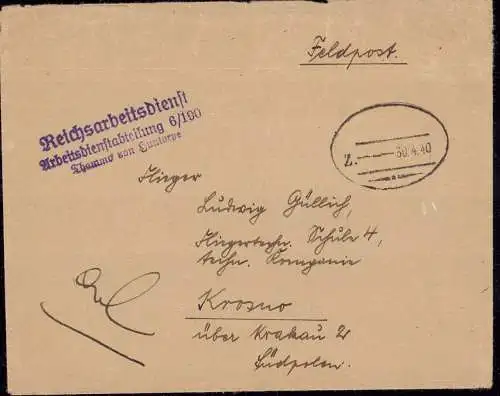 Feldpost.
Reichsarbeitsdienst
Arbeitsdienstabteilung 6/190
Thammo von Huntorpe
Z. 30.4.40
Flieger
Ludwig Güllich,
Fliegertechn. Schule 4,
techn. Kompanie
Krosno
über Krakau 2
Südpolen.